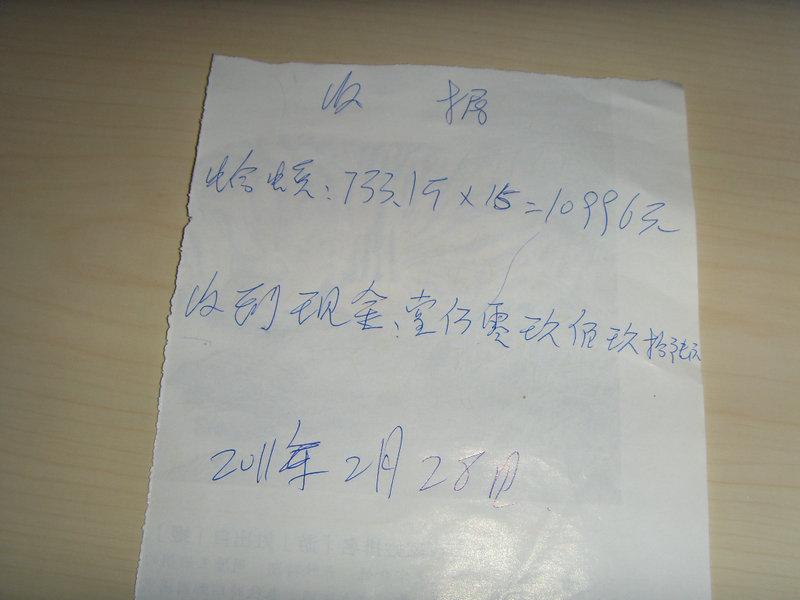 收 据
蛤蜊:733.1斤×15=10996元
收到现金、壹仟零玖佰玖拾
2011年2月28日